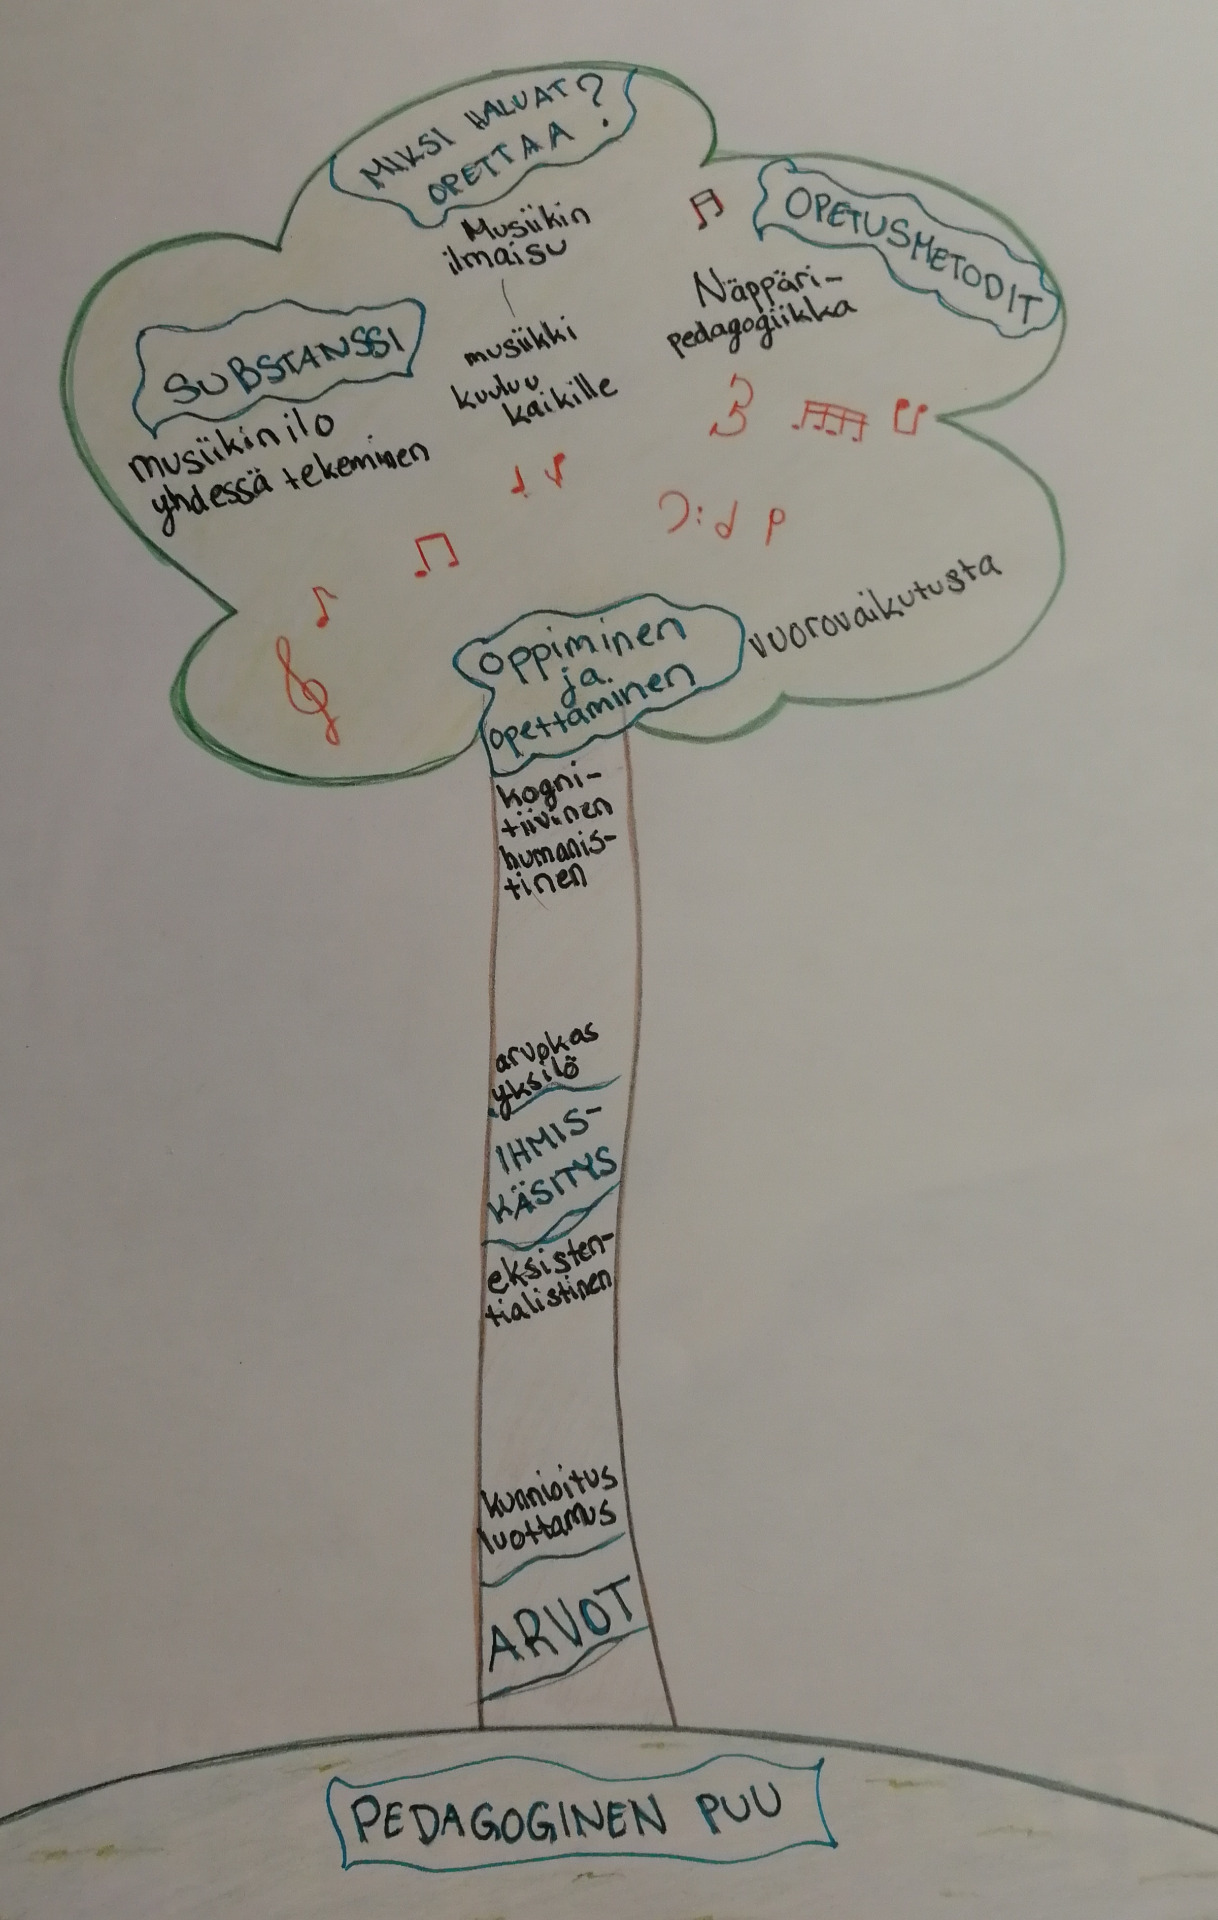 MIKSI HALUAT
OPETTAA?
Musiikin
ilmaisu
musiikki
kuuluu
kaikille
OPETUSMETODIT
Näppäri-
pedagogiikka
SUBSTANSSI
musiikin ilo
yhdessä tekeminen
oppiminen
ja
opettaminen
vuorovaikutusta
kogni-
tiivinen
humanis-
tinen
arvokas
yksilö
IHMIS-
KÄSITYS
eksisten-
tialistinen
kunnioitus
luottamus
ARVOT
PEDAGOGINEN PUU